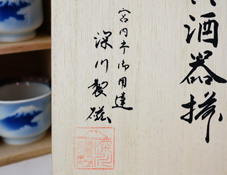 酒器揃
宮内庁御用達
深川製磁